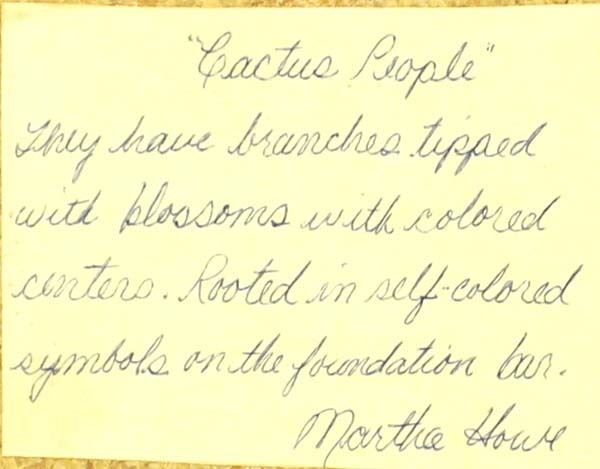 "Cactus People"
They have branches tipped
with blossoms with colored
centers. Rooted in self-colored
symbols on the foundation bar.
Martha Howe